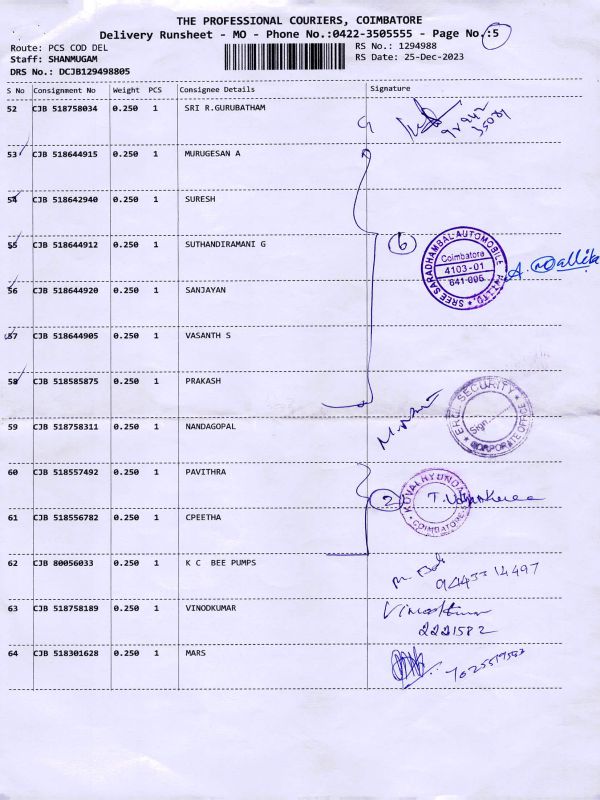 THE PROFESSIONAL COURIERS, COIMBATORE
Delivery Runsheet - MO - Phone No.:0422-3505555 - Page No.:5
Route: PCS COD DEL
RS No.: 1294988
Staff: SHANMUGAM
RS Date: 25-Dec-2023
DRS No.: DCJB129498805
S No Consignment No Weight PCS Consignee Details Signature
52 CJB 518758034 0.250 1 SRI R.GURUBATHAM
53 CJB 518644915 0.250 1 MURUGESAN A
54 CJB 518642940 0.250 1 SURESH
55 CJB 518644912 0.250 1 SUTHANDIRAMANI G
6
SREE SARADHAMBAL AUTOMOBILE
Coimbatore
4103-01
641 006
A. Mallika
56 CJB 518644920 0.250 1 SANJAYAN
57 CJB 518644905 0.250 1 VASANTH S
58 CJB 518585875 0.250 1 PRAKASH
SECURITY
Sign
CORPORATE OFFICE
59 CJB 518758311 0.250 1 NANDAGOPAL
60 CJB 518557492 0.250 1 PAVITHRA
2
HYUNDAI
COIMBATORE
61 CJB 518556782 0.250 1 CPEETHA
62 CJB 80056033 0.250 1 K C BEE PUMPS
9443314497
63 CJB 518758189 0.250 1 VINODKUMAR
Vinodkumar
2221582
64 CJB 518301628 0.250 1 MARS